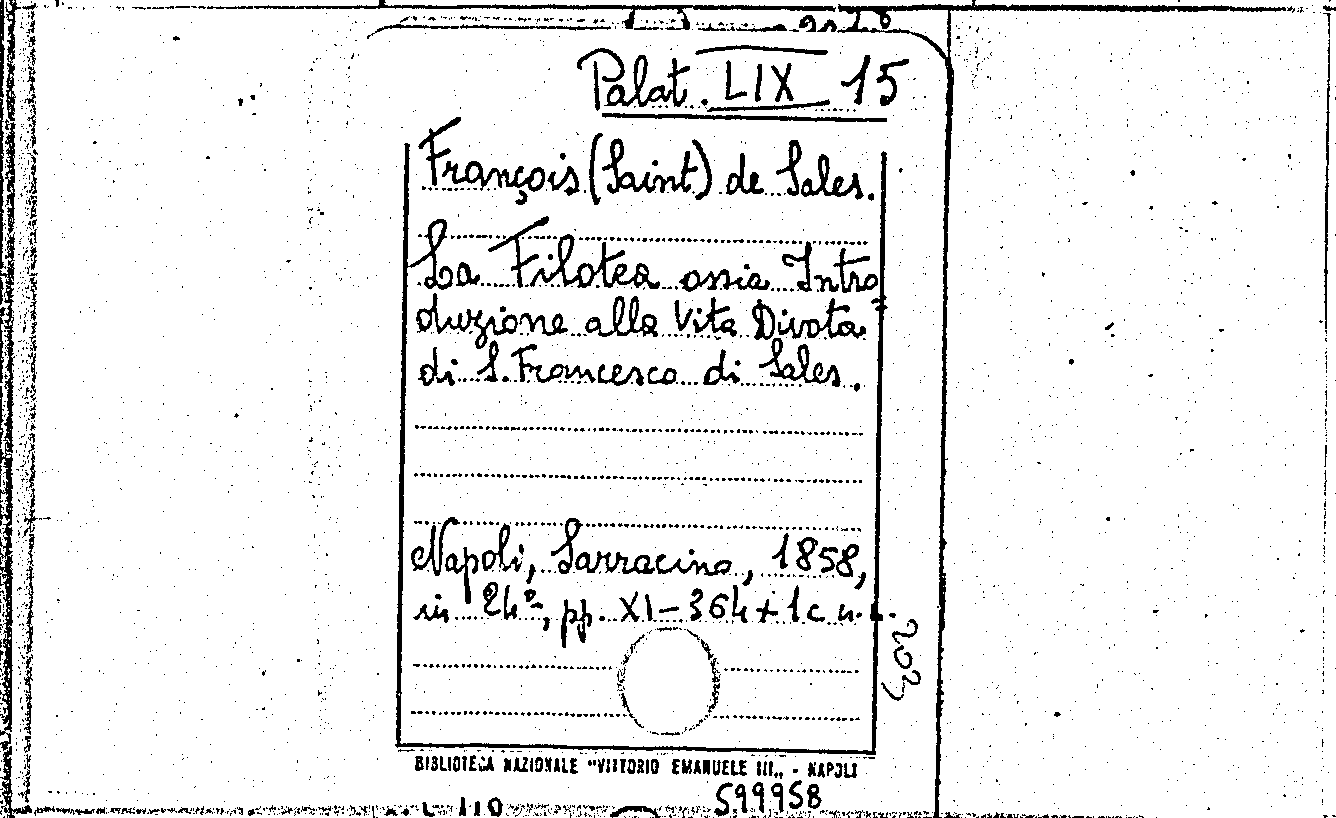 Palat. LIX 15
François (Saint) de Sales.
La Filotea ossia Intro=
duzione alla Vita Divota
di S. Francesco di Sales.
Napoli, Sarracino, 1858,
in 24º, pp. XI-364+1c n.n.
203
BIBLIOTECA NAZIONALE "VITTORIO EMANUELE III„ - NAPOLI
599958